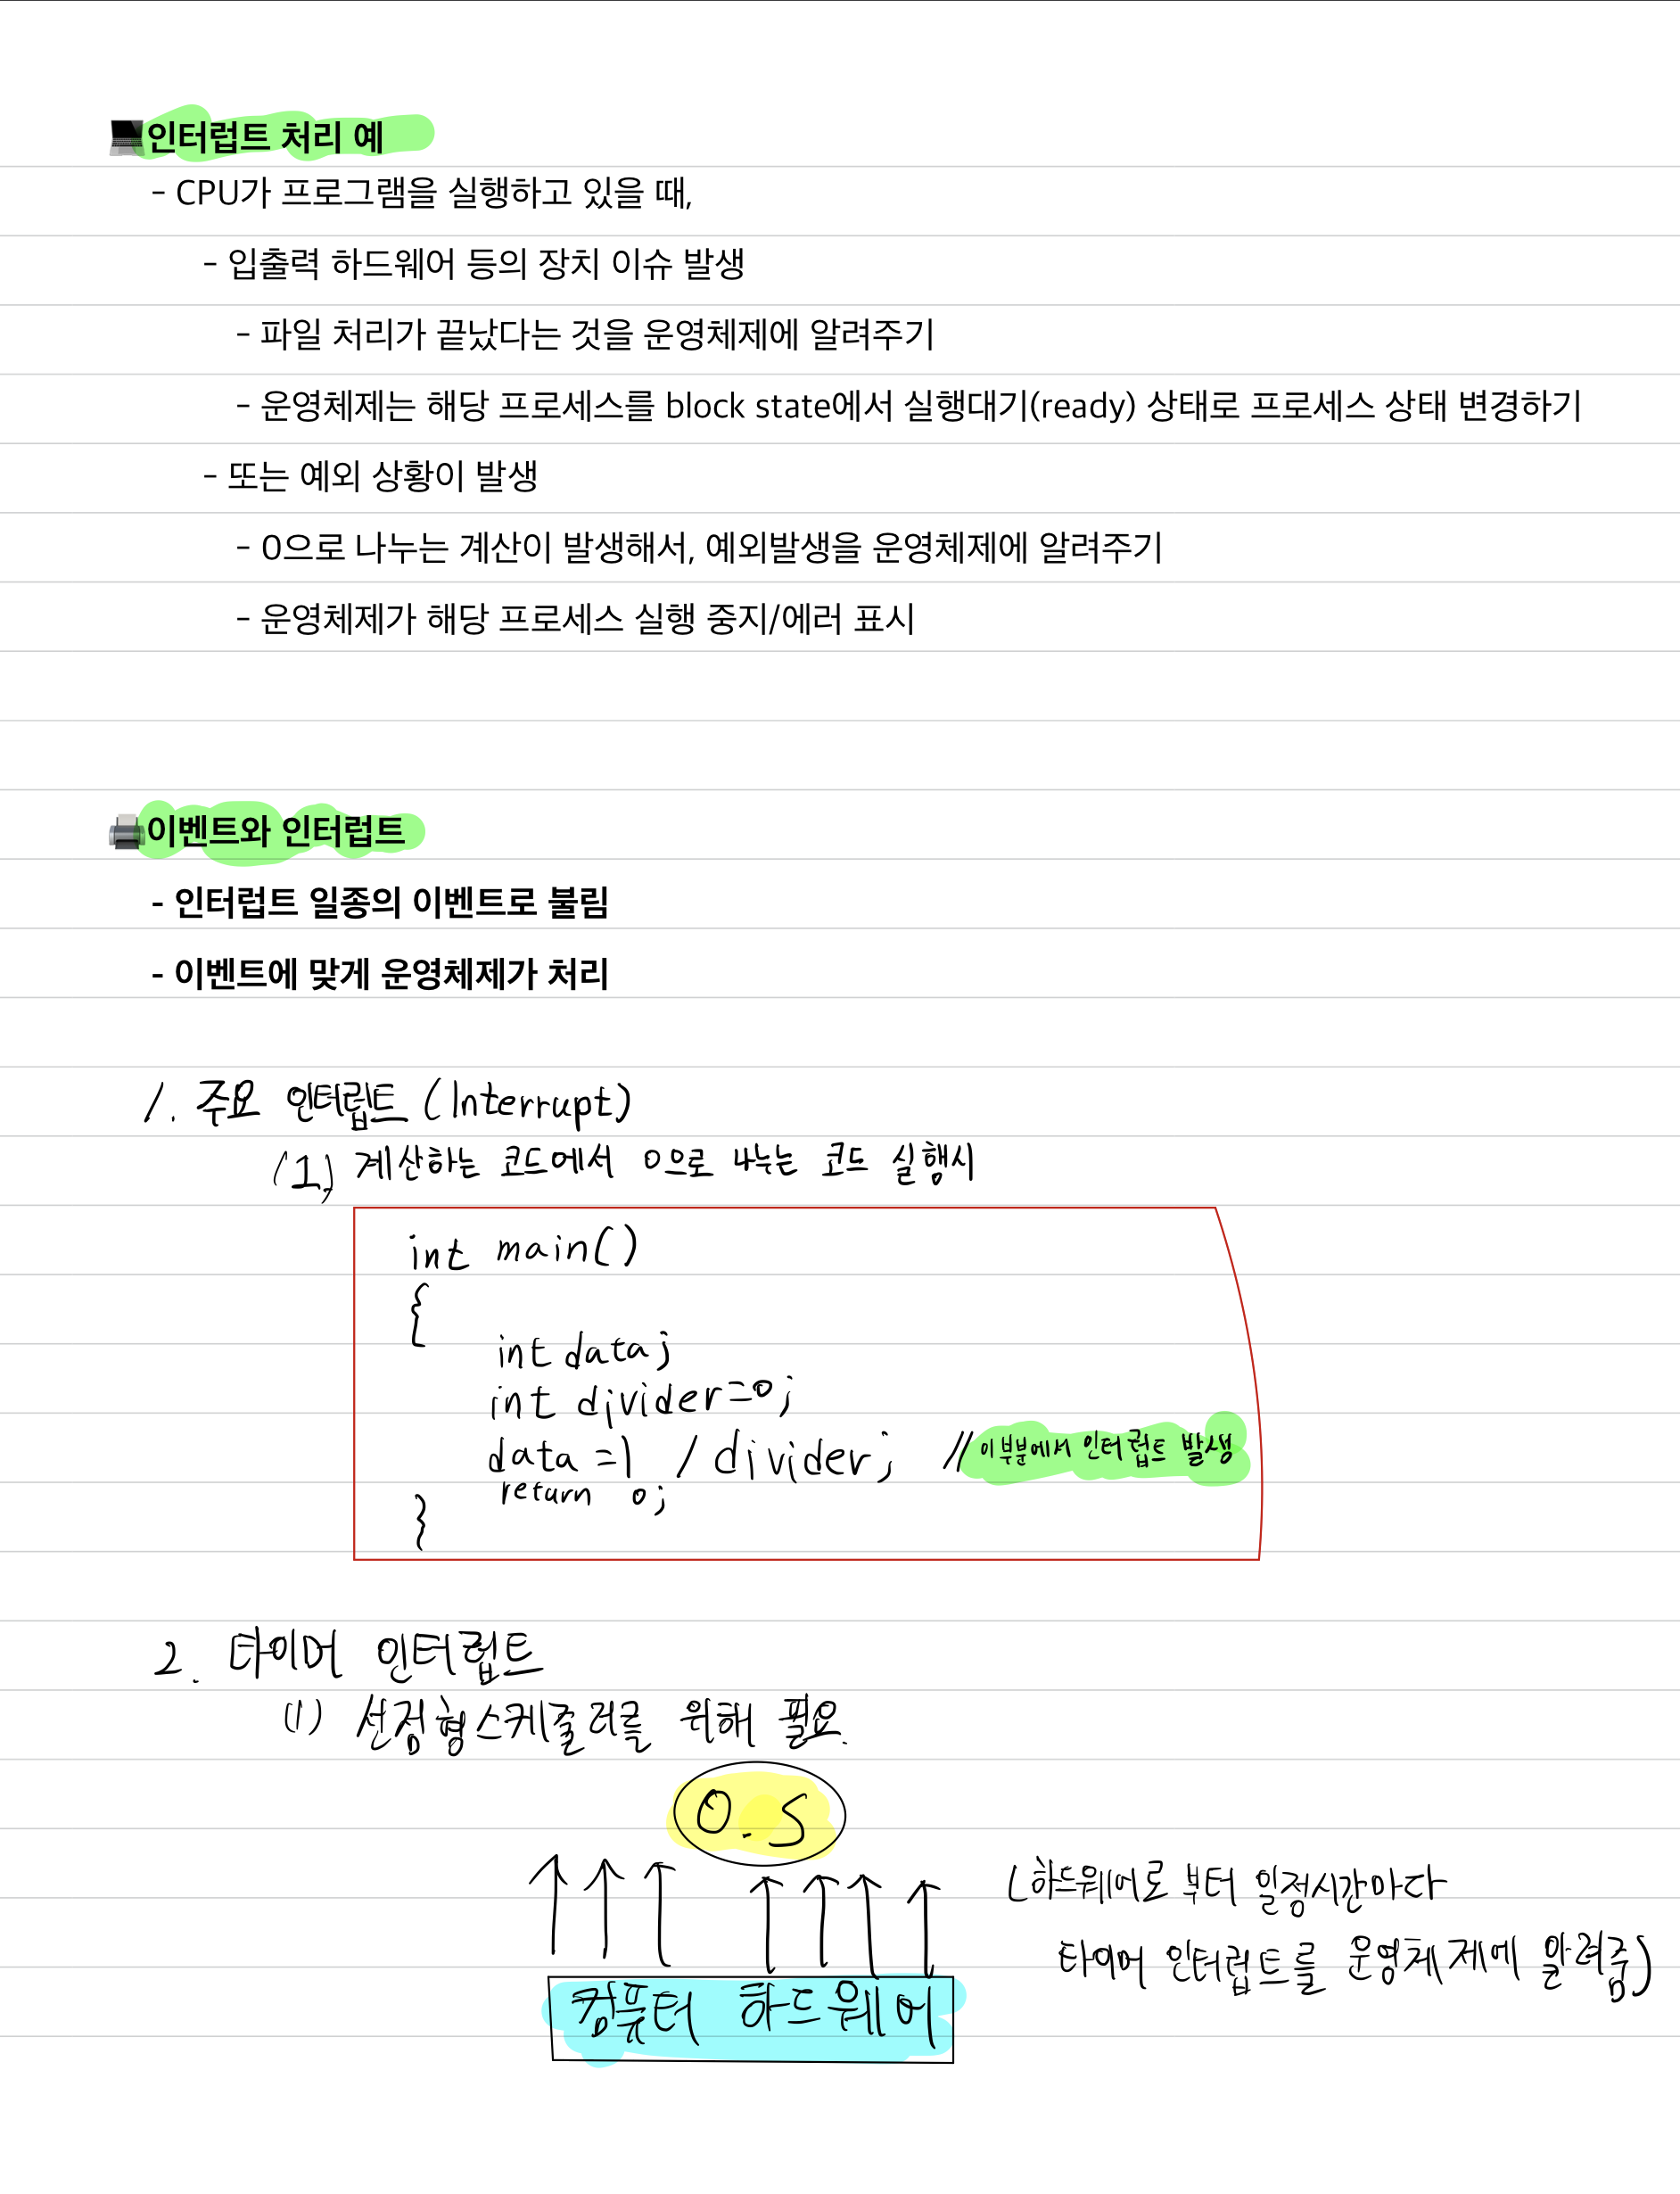 인터럽트 처리 예
- CPU가 프로그램을 실행하고 있을 때,
- 입출력 하드웨어 등의 장치 이슈 발생
- 파일 처리가 끝났다는 것을 운영체제에 알려주기
- 운영체제는 해당 프로세스를 block state에서 실행대기(ready) 상태로 프로세스 상태 변경하기
- 또는 예외 상황이 발생
- 0으로 나누는 계산이 발생해서, 예외발생을 운영체제에 알려주기
- 운영체제가 해당 프로세스 실행 중지/에러 표시
이벤트와 인터럽트
- 인터럽트 일종의 이벤트로 불림
- 이벤트에 맞게 운영체제가 처리
1. 주요 인터럽트 (Interrupt)
(1) 계산하는 코드에서 0으로 나누는 코드 실행시
int main()
{
int data;
int divider=0;
data =1 / divider; //이부분에서 인터럽트 발생
return 0;
}
2. 타이머 인터럽트
(1) 선점형스케줄러를 위해 필요.
O.S
(하드웨어로 부터 일정시간마다
타이머 인터럽트를 운영체제에 알려줌)
컴퓨터 하드웨어